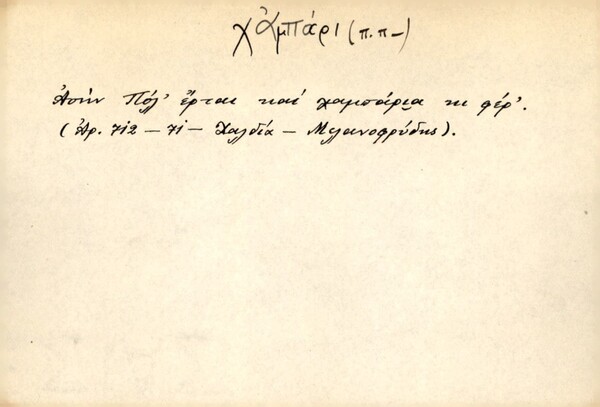 χἀμπάρι (π.π-)
Ἀσήν Πόλ' ἔρται καί χαμπάρια κι φέρ'.
(Ἀρ. 712 - 71 - Χαλδία - Μελανοφρύδης).